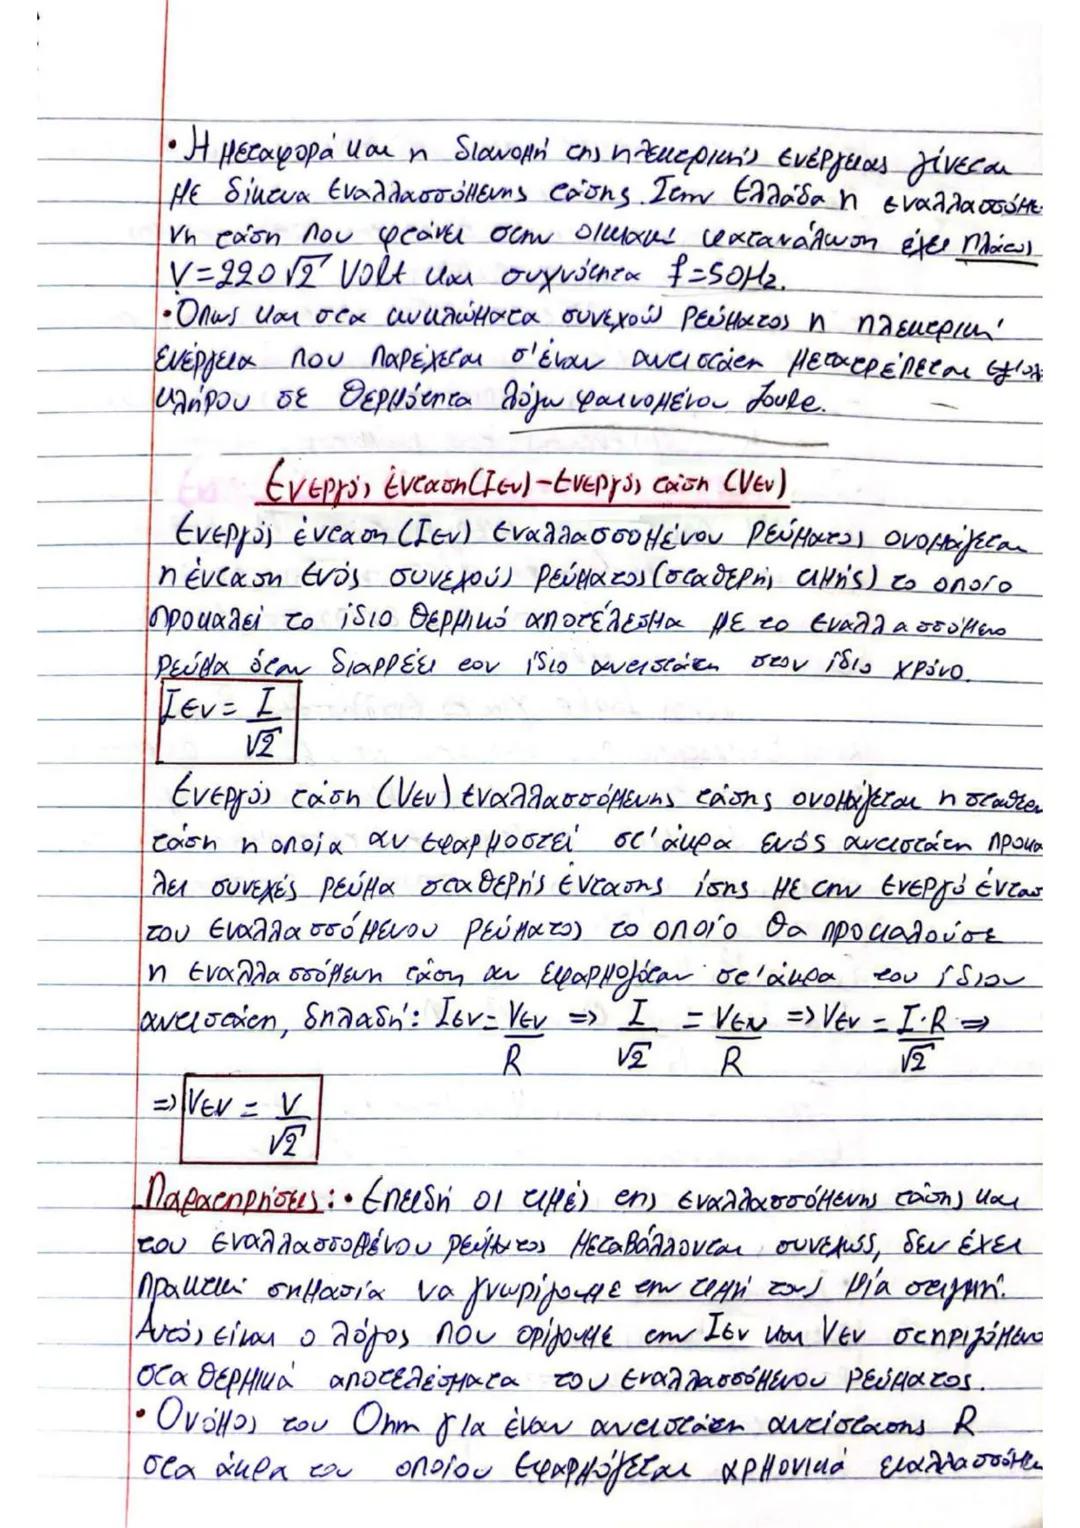 • Η μεταφορά και η διανομή της ηλεκτρικής ενέργειας γίνεται
με δίκτυα εναλλασσόμενης τάσης. Στην Ελλάδα η εναλλασσόμε
νη τάση που φτάνει στην οικιακή κατανάλωση έχει πλάτος
V=220√2 Volt και συχνότητα f=50Hz.
• Όπως και στα κυκλώματα συνεχούς ρεύματος η ηλεκτρική
ενέργεια που παρέχεται σ'έναν αντιστάτη μετατρέπεται εξ'ολ
κλήρου σε θερμότητα λόγω φαινομένου Joule.
Ενεργός ένταση(Iεν)-Ενεργός τάση (Vεν)
Ενεργός ένταση (Iεν) εναλλασσομένου ρεύματος ονομάζεται
η ένταση ενός συνεχούς ρεύματος (σταθερής τιμής) το οποίο
προκαλεί το ίδιο θερμικό αποτέλεσμα με το εναλλασσόμενο
ρεύμα όταν διαρρέει τον ίδιο αντιστάτη στον ίδιο χρόνο.
Iεν = I/√2
Ενεργός τάση (Vεν) εναλλασσόμενης τάσης ονομάζεται η σταθερ
τάση η οποία αν εφαρμοστεί στ'άκρα ενός αντιστάτη προκα
λει συνεχές ρεύμα σταθερής έντασης ίσης με την ενεργό έντασ
του εναλλασσόμενου ρεύματος το οποίο θα προκαλούσε
η εναλλασσόμενη τάση αν εφαρμοζόταν στ'άκρα του ίδιου
αντιστάτη, δηλαδή: Iεν = Vεν/R => I/√2 = Vεν/R => Vεν = I·R/√2 =>
=> Vεν = V/√2
Παρατηρήσεις: • Επειδή οι τιμές της εναλλασσόμενης τάσης και
του εναλλασσομένου ρεύματος μεταβάλλονται συνεχώς, δεν έχει
πρακτική σημασία να γνωρίζουμε την τιμή τους μία στιγμή.
Αυτός είναι ο λόγος που ορίζουμε την Iεν και Vεν στηριζόμενο
στα θερμικά αποτελέσματα του εναλλασσόμενου ρεύματος.
• Ο νόμος του Ohm για έναν αντιστάτη αντίστασης R
στα άκρα του οποίου εφαρμόζεται αρμονικά εναλλασσόμεν